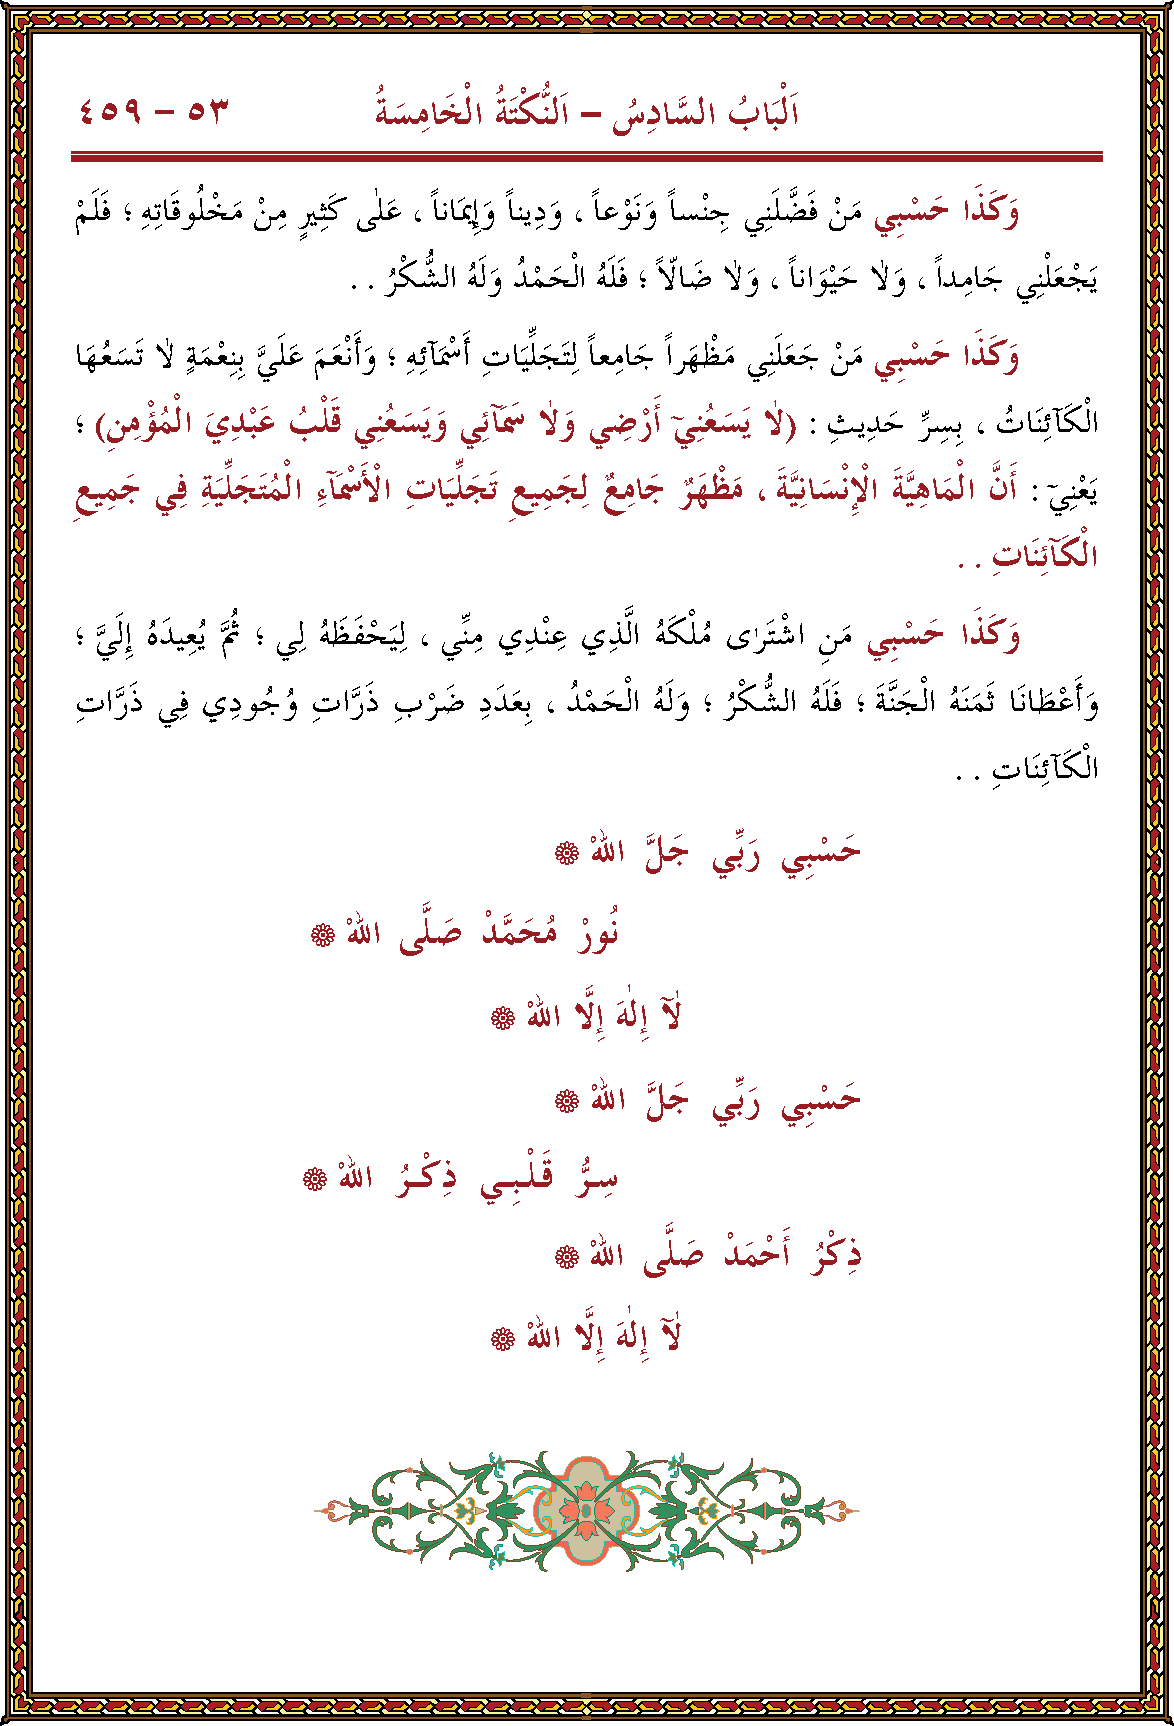 اَلْبَابُ السَّادِسُ – اَلنُّكْتَةُ الْخَامِسَةُ ٥٣ – ٤٥٩
وَكَذَا حَسْبِي مَنْ فَضَّلَنِي جِنْساً وَنَوْعاً ، وَدِيناً وَإِيمَاناً ، عَلٰى كَثِيرٍ مِنْ مَخْلُوقَاتِهِ ؛ فَلَمْ
يَجْعَلْنِي جَامِداً ، وَلاٰ حَيْوَاناً ، وَلاٰ ضَالّاً ؛ فَلَهُ الْحَمْدُ وَلَهُ الشُّكْرُ . .
وَكَذَا حَسْبِي مَنْ جَعَلَنِي مَظْهَراً جَامِعاً لِتَجَلِّيَاتِ أَسْمَآئِهِ ؛ وَأَنْعَمَ عَلَيَّ بِنِعْمَةٍ لاٰ تَسَعُهَا
الْكَآئِنَاتُ ، بِسِرِّ حَدِيثِ : (لاٰ يَسَعُنِيٓ أَرْضِي وَلاٰ سَمَآئِي وَيَسَعُنِي قَلْبُ عَبْدِيَ الْمُؤْمِنِ) ؛
يَعْنِيٓ : أَنَّ الْمَاهِيَّةَ الْإِنْسَانِيَّةَ ، مَظْهَرٌ جَامِعٌ لِجَمِيعِ تَجَلِّيَاتِ الْأَسْمَآءِ الْمُتَجَلِّيَةِ فِي جَمِيعِ
الْكَآئِنَاتِ . .
وَكَذَا حَسْبِي مَنِ اشْتَرٰى مُلْكَهُ الَّذِي عِنْدِي مِنِّي ، لِيَحْفَظَهُ لِي ؛ ثُمَّ يُعِيدَهُ إِلَيَّ ؛
وَأَعْطَانَا ثَمَنَهُ الْجَنَّةَ ؛ فَلَهُ الشُّكْرُ ؛ وَلَهُ الْحَمْدُ ، بِعَدَدِ ضَرْبِ ذَرَّاتِ وُجُودِي فِي ذَرَّاتِ
الْكَآئِنَاتِ . .
حَسْبِي رَبِّي جَلَّ اللهْ ۞
نُورْ مُحَمَّدْ صَلَّى اللهْ ۞
لٰآ إِلٰهَ إِلَّا اللهْ ۞
حَسْبِي رَبِّي جَلَّ اللهْ ۞
سِرُّ قَلْبِي ذِكْرُ اللهْ ۞
ذِكْرُ أَحْمَدْ صَلَّى اللهْ ۞
لٰآ إِلٰهَ إِلَّا اللهْ ۞